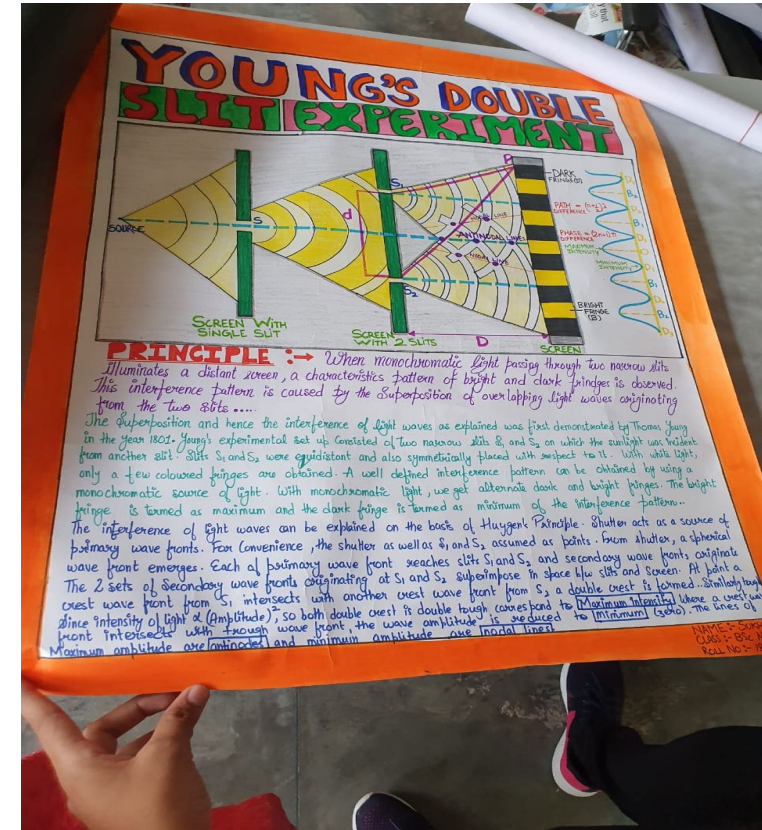 YOUNG'S DOUBLE
SLIT EXPERIMENT
SOURCE
S
SCREEN WITH
SINGLE SLIT
d
S₁
S₂
SCREEN
WITH 2 SLITS
P
ANTINODAL LINES
D
SCREEN
DARK
FRINGE(D)
PATH =
DIFFERENCE
PHASE = (2n+1)π
DIFFERENCE
MAXIMUM
INTENSITY
MINIMUM
INTENSITY
BRIGHT
FRINGE
(B)
PRINCIPLE :→ When monochromatic light passing through two narrow slits
illuminates a distant screen, a characteristics pattern of bright and dark frindges is observed.
This interference pattern is caused by the Superposition of overlapping light waves originating
from the two slits .....
The Superposition and hence the interference of light waves as explained was first demonstrated by Thomas Young
in the year 1801. Young's experimental set up consisted of two narrow slits S₁ and S₂ on which the sunlight was incident
from another slit. Slits S₁ and S₂ were equidistant and also symmetrically placed with respect to it. With white light,
only a few coloured fringes are obtained. A well defined interference pattern can be obtained by using a
monochromatic source of light. With monochromatic light, we get alternate dark and bright fringes. The bright
fringe is termed as maximum and the dark fringe is termed as minimum of the interference pattern..
The interference of light waves can be explained on the basis of Huygen's Principle. Shutter acts as a source of
primary wave fronts. For Convenience, the shutter as well as S₁ and S₂ assumed as points. From shutter, a spherical
wave front emerges. Each of primary wave front reaches slits S₁ and S₂ and secondary wave fronts originate
The 2 sets of Secondary wave fronts originating at S₁ and S₂ superimpose in space b/w slits and Screen. At point a
crest wave front from S₁ intersects with another crest wave front from S₂ a double crest is formed. Similarly
Since intensity of light α (Amplitude)², so both double crest is double tough correspond to Maximum intensity where a crest
front intersects with trough wave front, the wave amplitude is reduced to minimum (zero). The lines of
Maximum amplitude are antinodes and minimum amplitude are nodal lines
NAME:-
CLASS:- BSc
ROLL NO:-